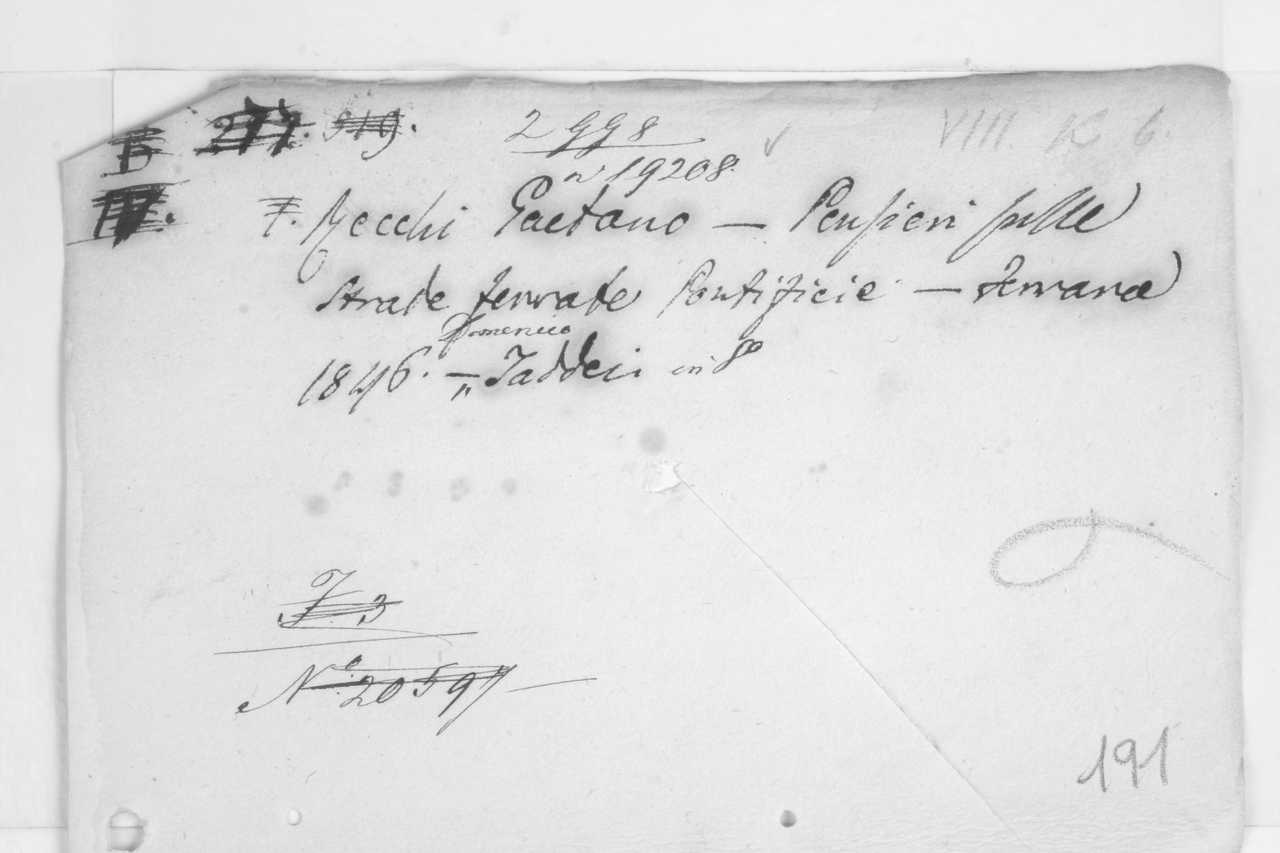 B 277. 519. 2998 VIII. K 6.
n 19208.
IV. 7. Recchi Gaetano — Pensieri sulle
Strade ferrate Pontificie — Ferrara
Domenico
1846. — Taddei in 8º
F. 3
Nº 20597
191